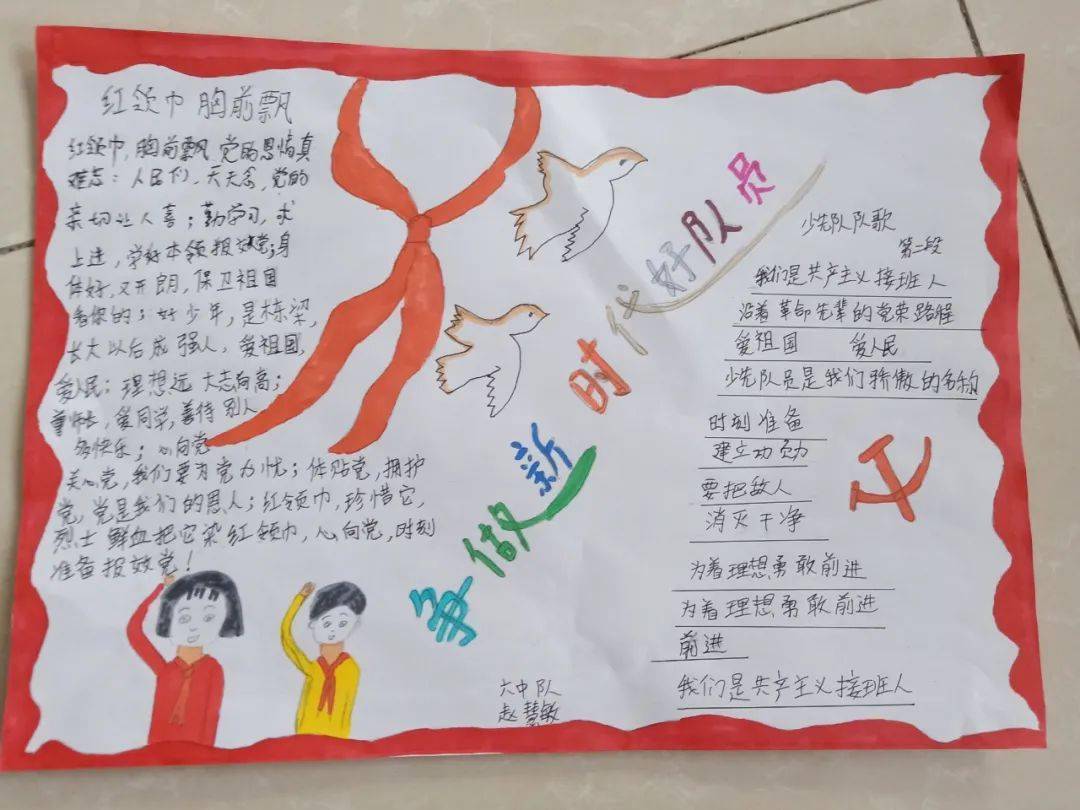 红领巾 胸前飘
红领巾,胸前飘 党的恩情真
难忘: 人民们、天天念,党的
亲切让人喜;勤学习,求
上进,学好本领报效党;身
体好,又开朗,保卫祖国
看你的;好少年,是栋梁,
长大以后成强人,爱祖国,
爱人民:理想远 大志向高;
尊师长,爱同学,善待别人
多快乐;心向党
关心党,我们要为党力忧;体贴党,拥护
党,党是我们的恩人;红领巾,珍惜它,
烈士鲜血把它染红领巾,心向党,时刻
准备报效党!
争做新时代好队员
六中队
赵慧敏
少先队队歌
第二段
我们是共产主义接班人
沿着革命先辈的光荣路程
爱祖国 爱人民
少先队员是我们骄傲的名称
时刻准备
建立功勋
要把敌人
消灭干净
为着理想勇敢前进
为着理想勇敢前进
前进
我们是共产主义接班人